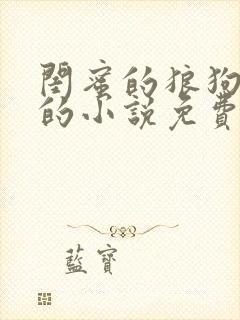 閨蜜的狼狗
的小說免費
藍寶